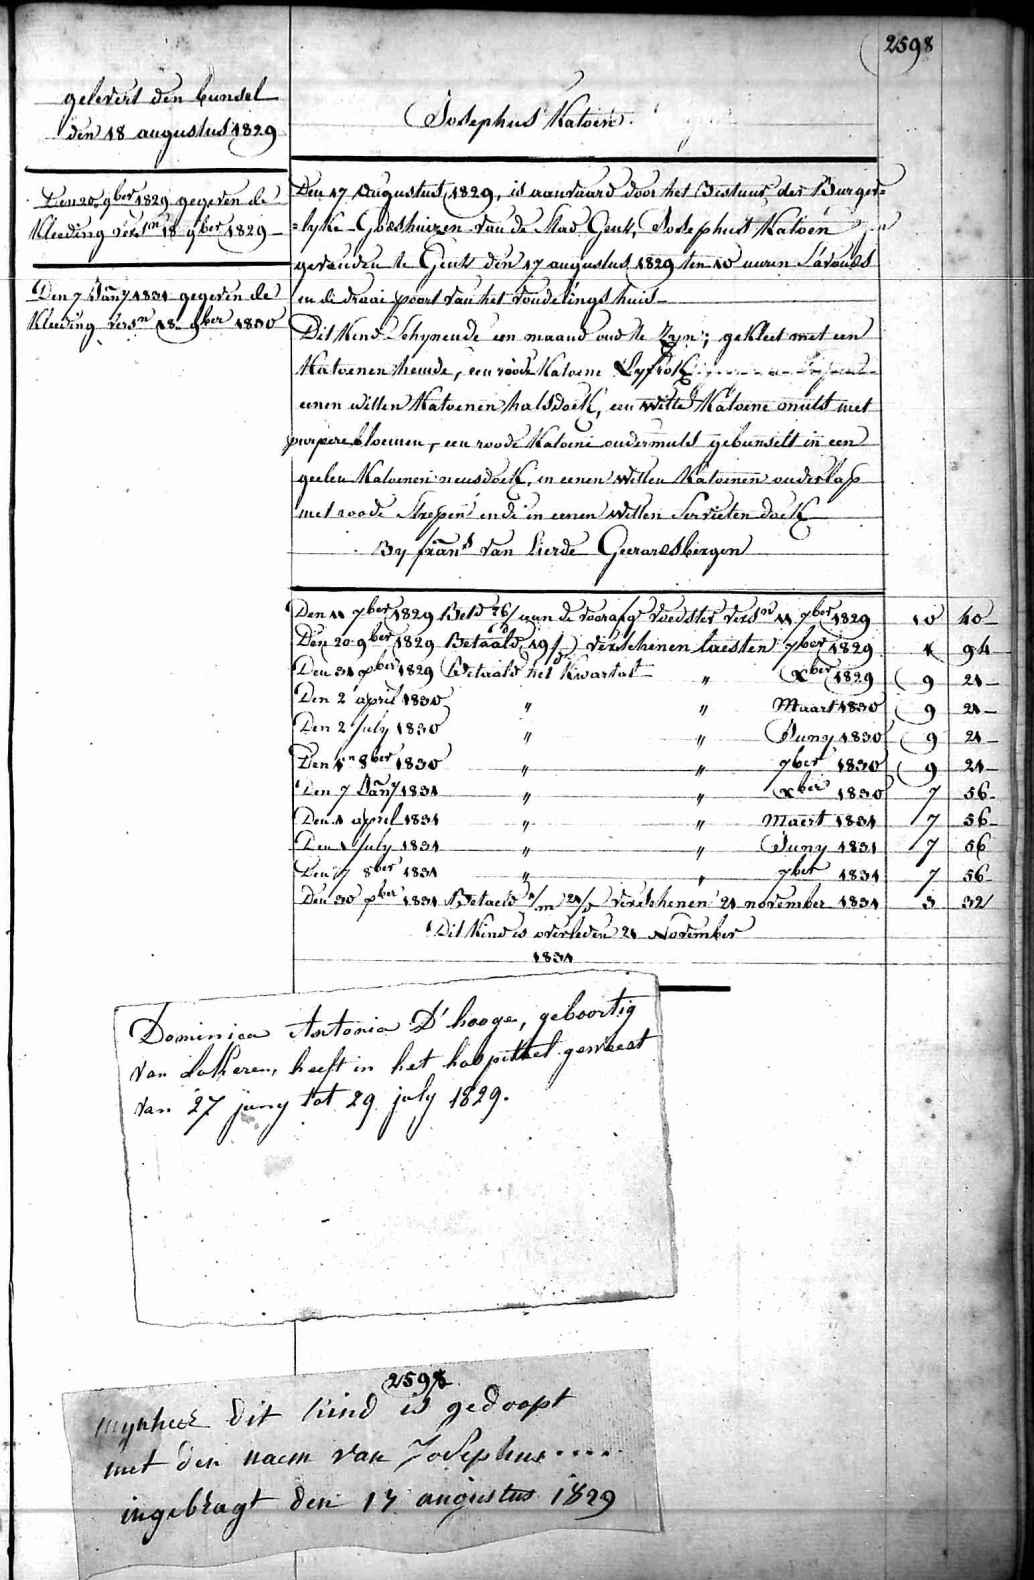 2598
gelevert den bunsel
den 18 augustus 1829
Josephus Katoen.
Den 20 9ber 1829 gegeven de
Kleeding vers.n 18 9ber 1829
Den 7 Jany 1831 gegeven de
Kleeding vers.n 18 9ber 1830
Den 17 Augustus 1829, is aanvaard door het Bestuur der Burger=
=lyke Godshuizen van de Stad Gent, Josephus Katoen
gevonden te Gent den 17 augustus 1829 ten 10 uuren S'avonds
in de draai poort van het vondelings huis
Dit Kind Schynende een maand oud te Zyn; gekleet met een
Katoenen hemde, een roode Katoene Lyfrok
eenen witten Katoenen halsdoek, een witte Katoene muts met
purpere bloemen, een roode Katoene ondermuts gebunselt in een
geelen Katoenen neusdoek, in eenen witten Katoenen onderlap
met roode Strepen ende in eenen witten Servieten doek
By frans van Lierde Geerardsbergen
Den 11 7ber 1829 Bet.d 26/ aan de voorafg voedster vers.n 11 7ber 1829 10 40
Den 20 9ber 1829 Betaald 19/ verschenen laesten 7ber 1829 1 94
Den 31 Xber 1829 Betaald het Kwartal " Xber 1829 9 21
Den 2 april 1830 " " Maart 1830 9 21
Den 2 July 1830 " " Juny 1830 9 21
Den 1n 8ber 1830 " " 7ber 1830 9 21
Den 7 Jany 1831 " " Xber 1830 7 56
Den 1 april 1831 " " Maert 1831 7 56
Den 1 July 1831 " " Juny 1831 7 56
Den 7 8ber 1831 " " 7ber 1831 7 56
Den 30 Xber 1831 Betaeld 1/m 21/d verschenen 21 november 1831 3 32
Dit Kind is overleden 21 November
1831
Dominica Antonia D'hooge, geboortig
van Lokeren, heeft in het hospittel geweest
van 27 juny tot 29 july 1829.
2598
mynheer dit kind is gedoopt
met den naem van Josephus....
ingebragt den 17 augustus 1829